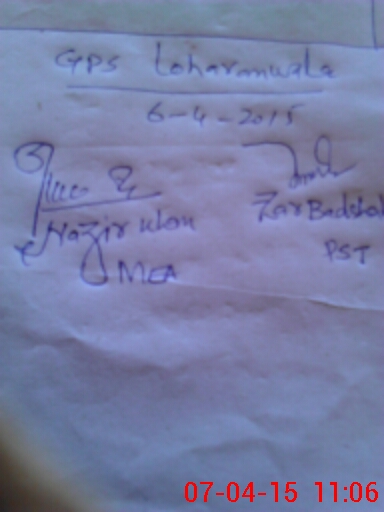 GPS Loharanwala
6-4-2015
Nazir Khan
Zar Badshah
MEA
PST
07-04-15 11:06